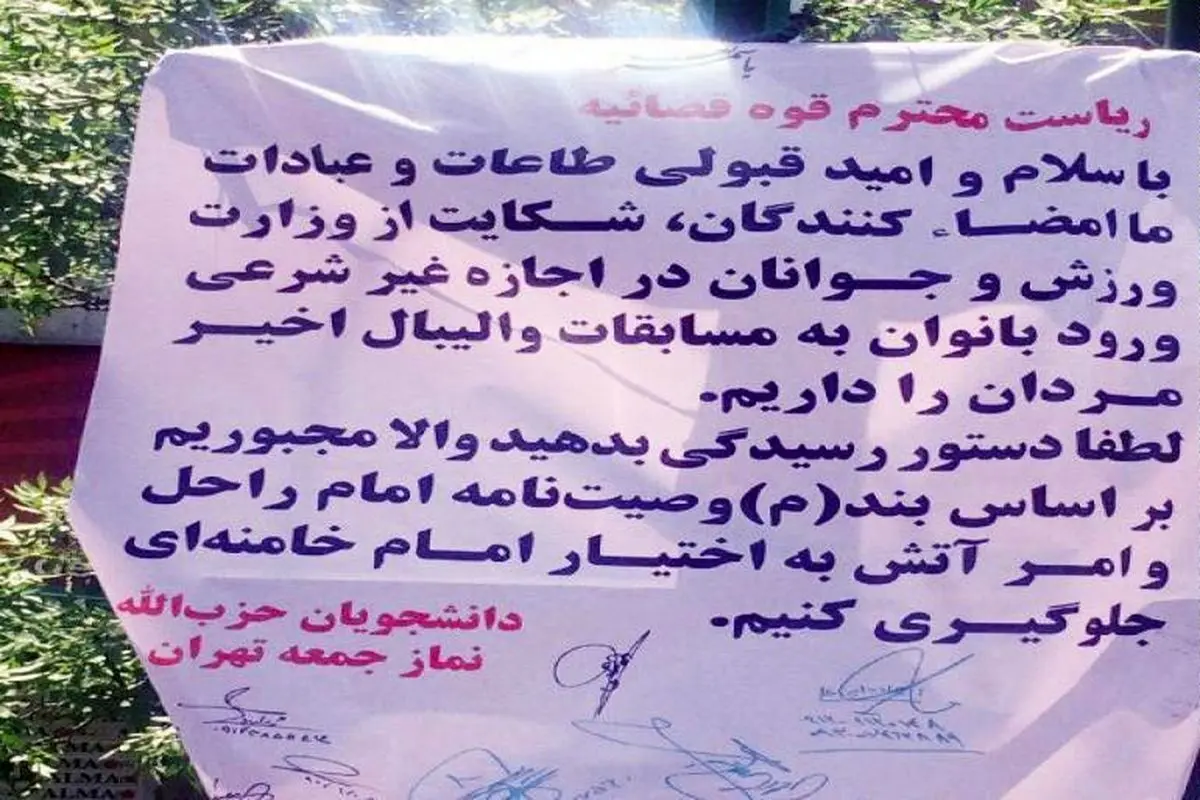 ریاست محترم قوه قضائیه
با سلام و امید قبولی طاعات و عبادات
ما امضاء کنندگان، شکایت از وزارت
ورزش و جوانان در اجازه غیر شرعی
ورود بانوان به مسابقات والیبال اخیر
مردان را داریم.
لطفا دستور رسیدگی بدهید والا مجبوریم
بر اساس بند(م)وصیت‌نامه امام راحل
و امر آتش به اختیار امام خامنه‌ای
جلوگیری کنیم.
دانشجویان حزب‌الله
نماز جمعه تهران
ALMA
ALMA
ALMA